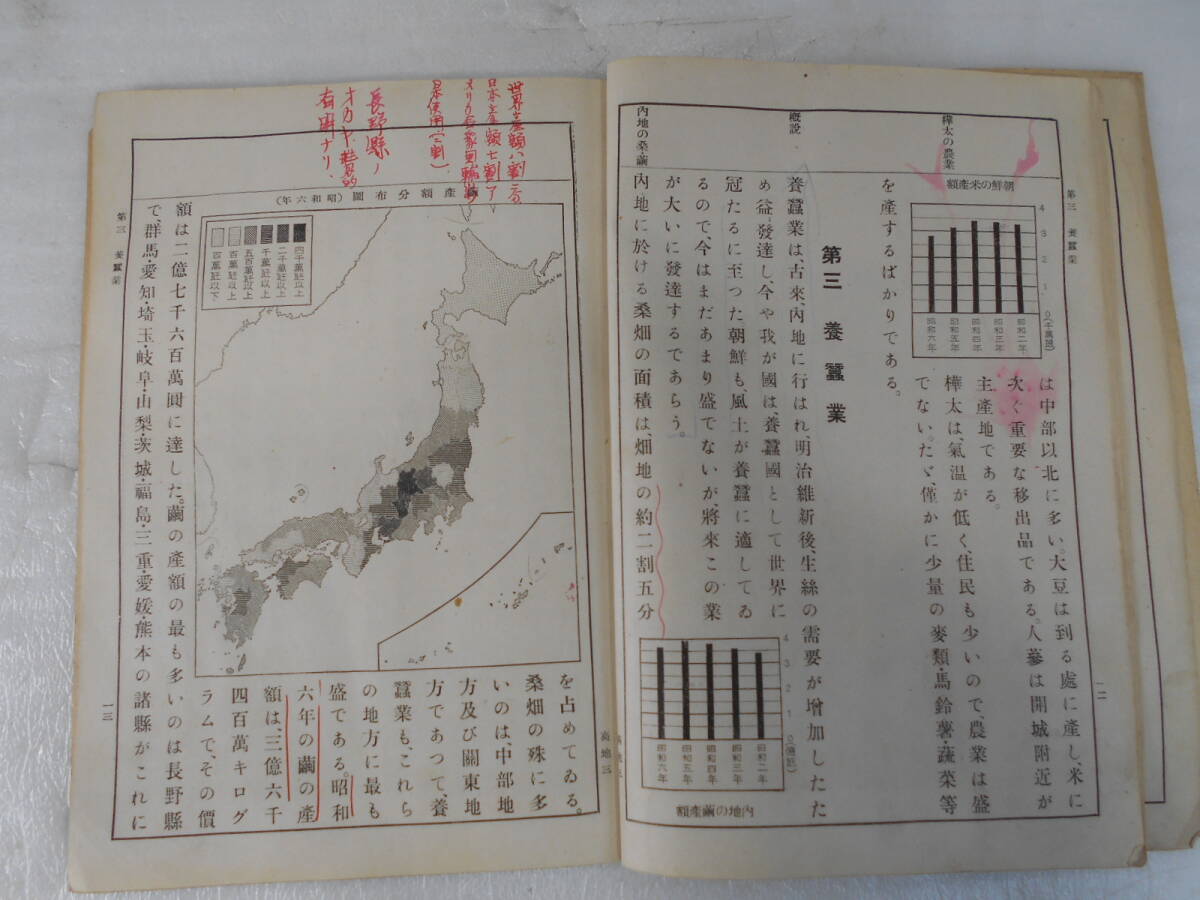 樺太の農業
概說
內地の桑・繭
第三 養蠶業
一二
朝鮮の米產額
4
3
2
1
0(千萬石)
昭和二年
昭和三年
昭和四年
昭和五年
昭和六年
は中部以北に多い。大豆は到る處に產し、米に
次ぐ重要な移出品である。人蔘は開城附近が
主產地である。
樺太は、氣溫が低く、住民も少いので、農業は盛
でない。たゞ、僅かに少量の麥類・馬鈴薯・蔬菜等
を產するばかりである。
第三 養蠶業
養蠶業は、古來、內地に行はれ、明治維新後、生絲の需要が增加したた
め益〻發達し、今や我が國は、養蠶國として世界に
冠たるに至つた。朝鮮も、風土が養蠶に適してゐ
るので、今はまだあまり盛でないが、將來この業
が大いに發達するであらう。
內地に於ける桑畑の面積は、畑地の約二割五分
4
3
2
1
昭和二年
昭和三年
昭和四年
昭和五年
昭和六年
內地の繭產額
繭產額分布圖(昭和六年)
四千萬瓩以上
二千萬瓩以上
千萬瓩以上
五百萬瓩以上
百萬瓩以上
百萬瓩以下
長野縣ノ
有明ナリ
を占めてゐる。
桑畑の殊に多
いのは、中部地
方及び關東地
方であつて、養
蠶業も、これら
の地方に最も
盛である。昭和
六年の繭の產
額は、三億六千
四百萬キログ
ラムで、その價
額は二億七千六百萬圓に達した。繭の產額の最も多いのは長野縣
で、群馬・愛知・埼玉・岐阜・山梨・茨城・福島・三重・愛媛・熊本の諸縣がこれに
第三 養蠶業
一三